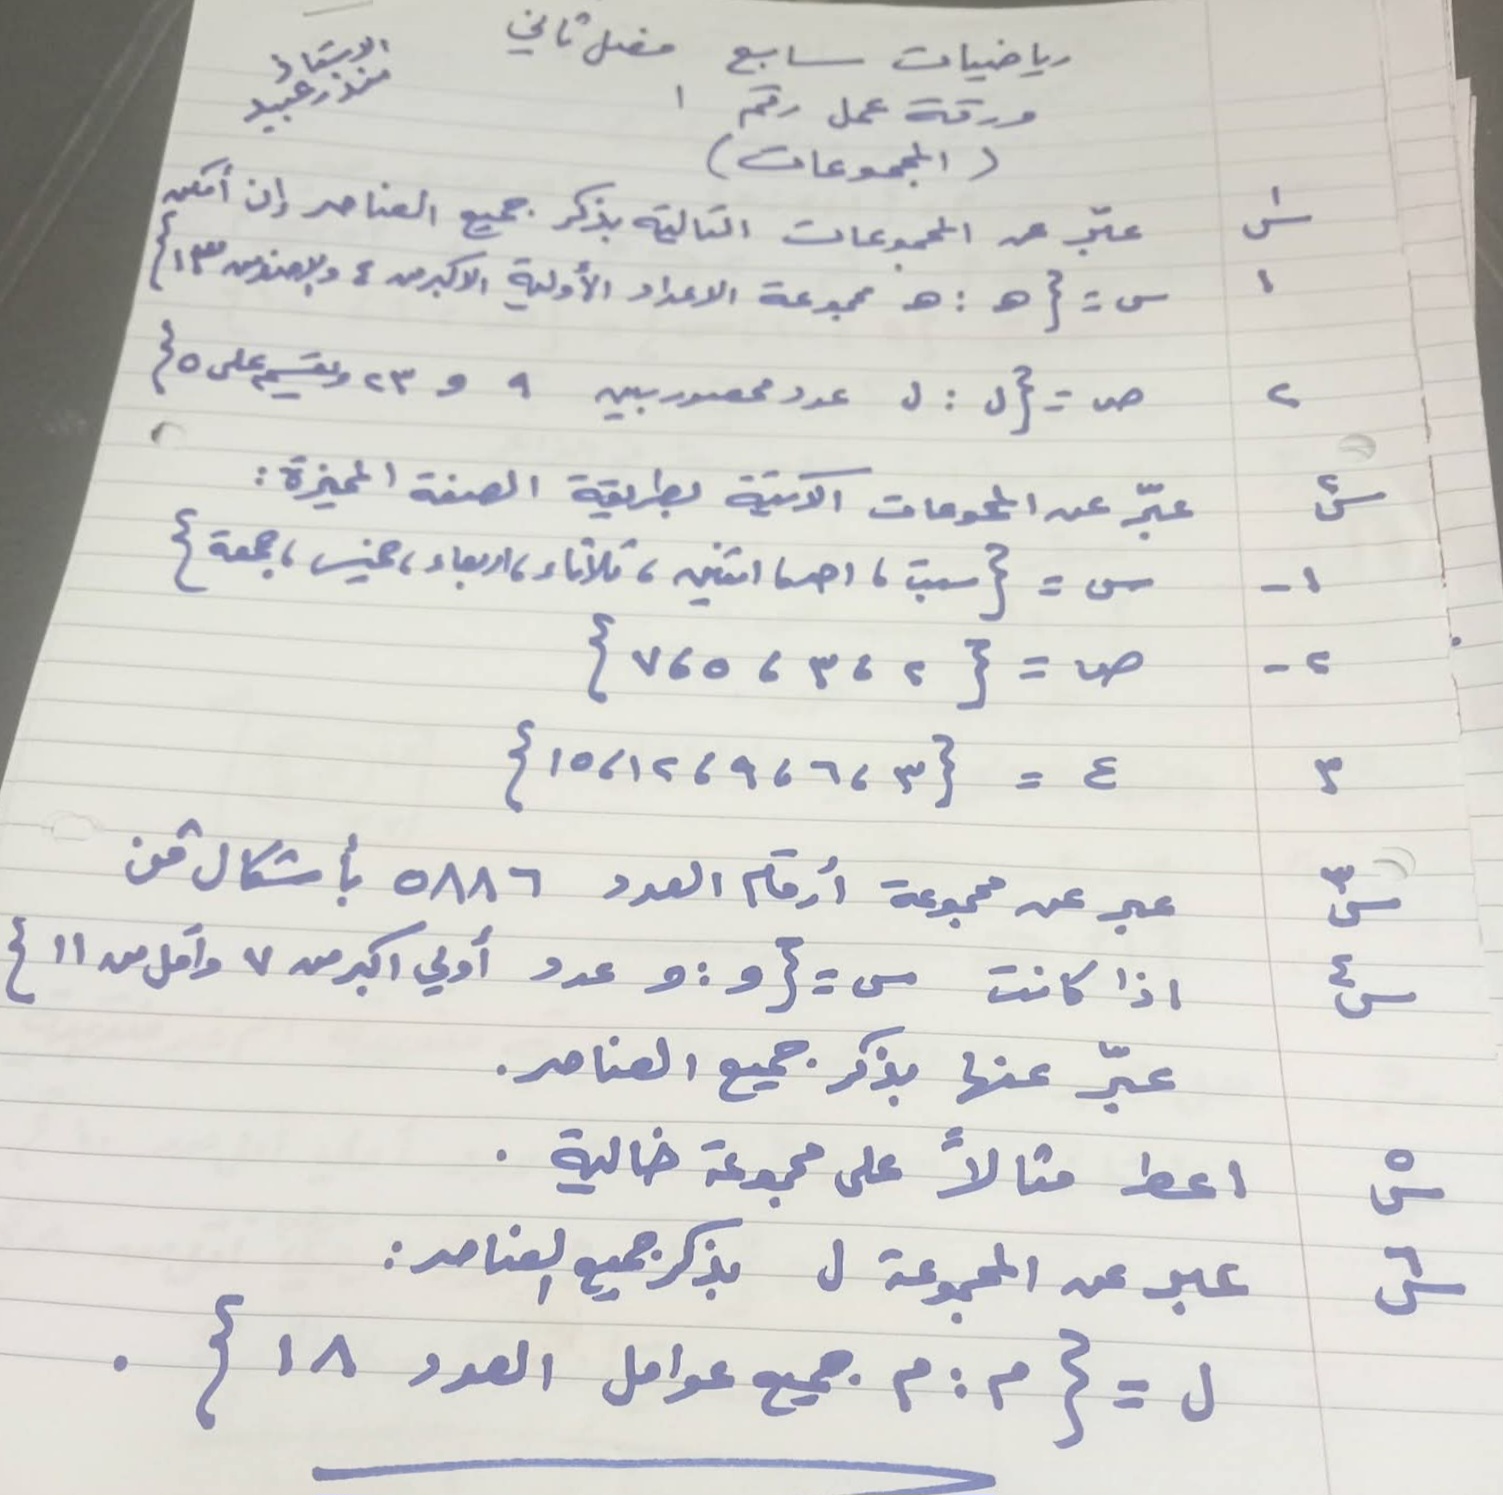 رياضيات سابع فصل ثاني
الاستاذ
منذر عبيد
ورقة عمل رقم ١
(المجموعات)
س١ عبّر عن المجموعات التالية بذكر جميع العناصر إن أمكن
١ س = {هـ : هـ مجموعة الاعداد الأولية الاكبر من ٤ والاصغر من ١٣}
٢ ص = {ل : ل عدد محصور بين ٩ و ٢٣ ويقسم على ٥}
س٢ عبّر عن المجموعات الآتية بطريقة الصفة المميزة:
١- س = {سبت، احد، اثنين، ثلاثاء، اربعاء، خميس، جمعة}
٢- ص = {٢، ٣، ٥، ٧}
٣ ع = {٣، ٦، ٩، ١٢، ١٥}
س٣ عبر عن مجموعة أرقام العدد ٥٨٨٦ بأشكال فن
س٤ اذا كانت س = {و : و عدد أولي اكبر من ٧ وأقل من ١١}
عبّر عنها بذكر جميع العناصر.
س٥ اعط مثالاً على مجموعة خالية.
س٦ عبر عن المجموعة ل بذكر جميع العناصر:
ل = {م : م جميع عوامل العدد ١٨}.